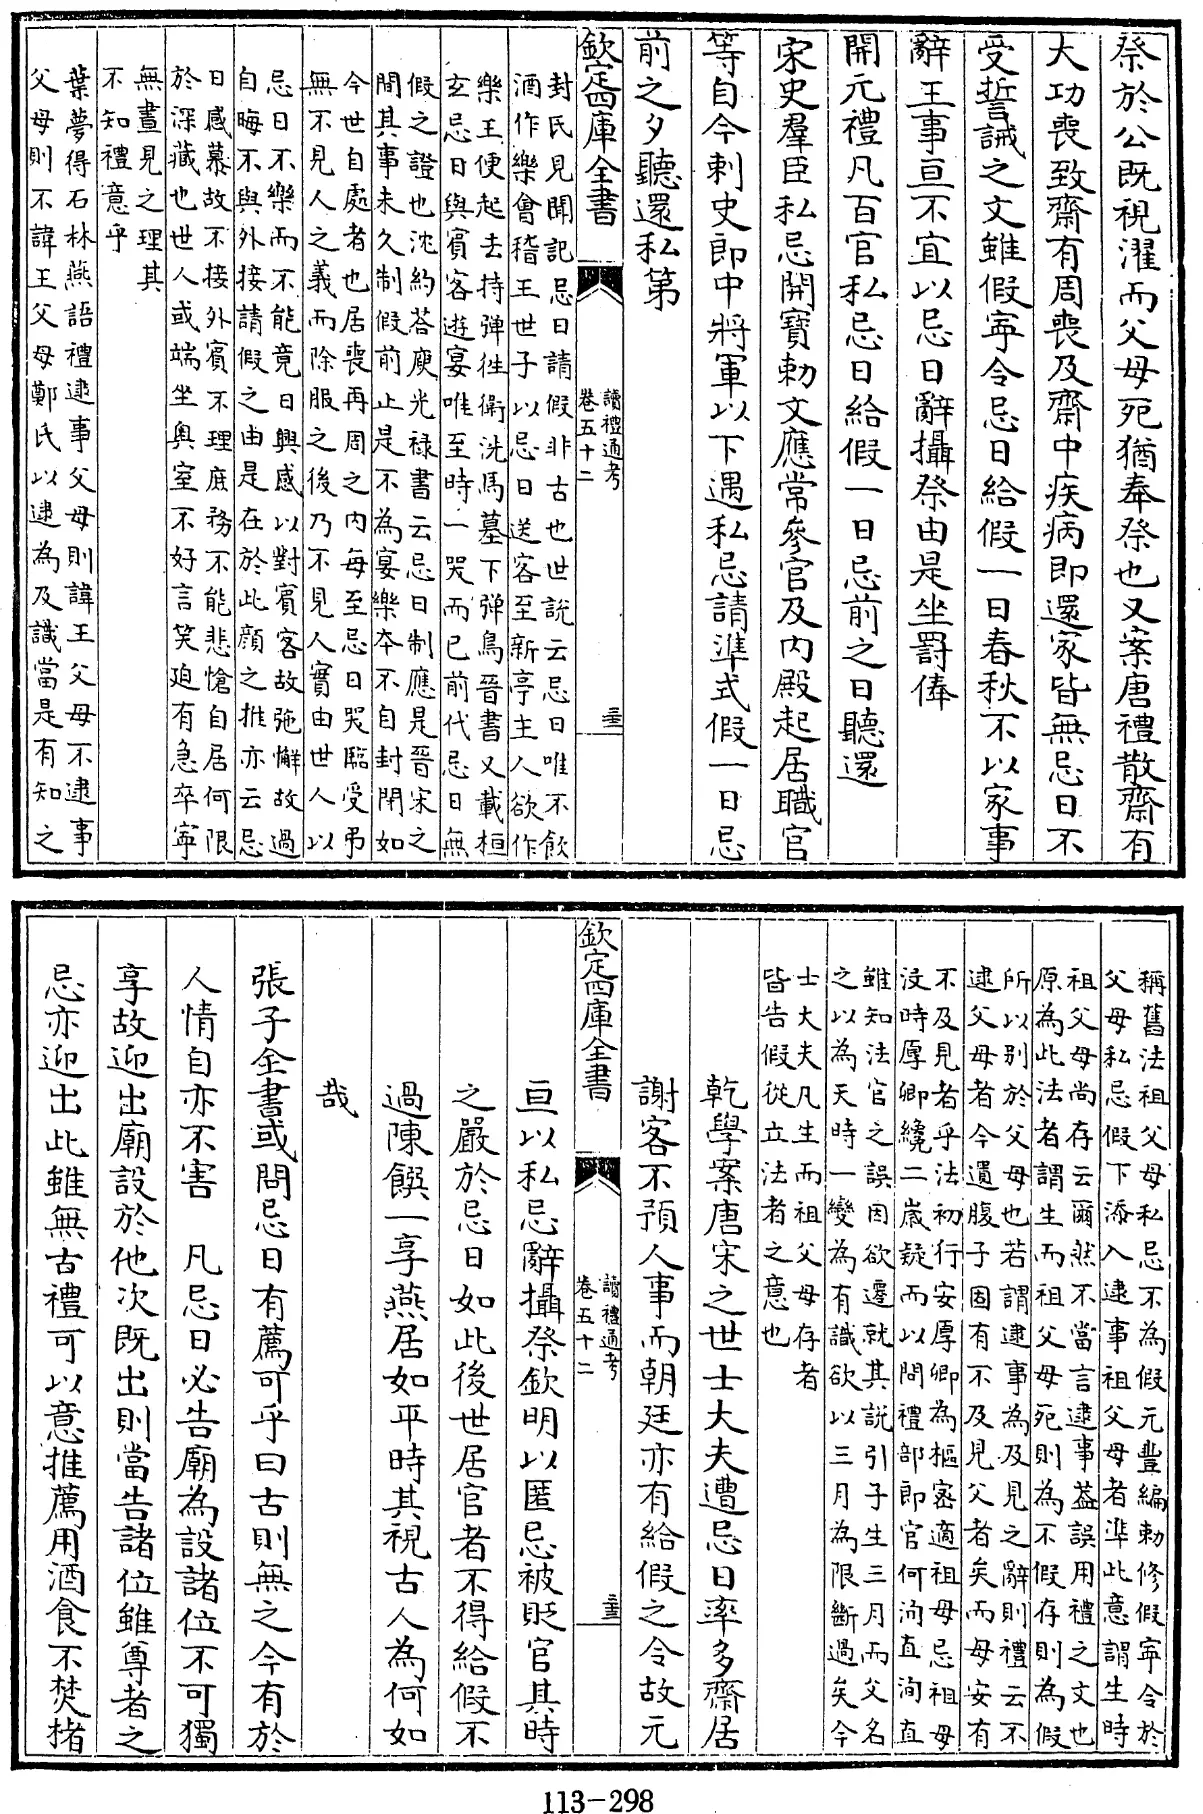 祭於公既視濯而父母死猶奉祭也又案唐禮散齋有
大功喪致齋有周喪及齋中疾病即還家皆無忌日不
受誓誡之文雖假寧令忌日給假一日春秋不以家事
辭王事亘不宜以忌日辭攝祭由是坐罰俸
開元禮凡百官私忌日給假一日忌前之日聽還
宋史羣臣私忌開寶勅文應常參官及内殿起居職官
等自今刺史郎中將軍以下遇私忌請準式假一日忌
前之夕聽還私第
欽定四庫全書
讀禮通考
卷五十二
封氏見聞記忌日請假非古也世說云忌日唯不飲
酒作樂會稽王世子以忌日送客至新亭主人欲作
樂王便起去持彈徃衛洗馬墓下彈鳥晉書又載桓
玄忌日與賓客遊宴唯至時一哭而已前代忌日無
假之證也沈約荅庾光祿書云忌日制應是晉宋之
間其事未久制假前止是不為宴樂本不自封閉如
今世自處者也居喪再周之内每至忌日哭臨受弔
無不見人之義而除服之後乃不見人實由世人以
忌日不樂而不能竟日興感以對賓客故弛懈故過
自晦不與外接請假之由是在於此顔之推亦云忌
日感慕故不接外賓不理庶務不能悲愴自居何限
於深藏也世人或端坐奥室不好言笑迫有急卒寧
無晝見之理其
不知禮意乎
葉夢得石林燕語禮逮事父母則諱王父母不逮事
父母則不諱王父母鄭氏以逮為及識當是有知之
稱舊法祖父母私忌不為假元豐編勅修假寧令於
父母私忌假下添入逮事祖父母者準此意謂生時
祖父母尚存云爾然不當言逮事葢誤用禮之文也
原為此法者謂生而祖父母死則為不假存則為假
所以别於父母也若謂逮事為及見之辭則禮云不
逮父母者今遺腹子固有不及見父者矣而母安有
不及見者乎法初行安厚卿為樞密適祖母忌祖母
沒時厚卿纔二歲疑而以問禮部郎官何洵直洵直
雖知法官之誤因欲遷就其說引子生三月而父名
之以為天時一變為有識欲以三月為限斷過矣今
士大夫凡生而祖父母存者
皆告假從立法者之意也
乾學案唐宋之世士大夫遭忌日率多齋居
謝客不預人事而朝廷亦有給假之令故元
欽定四庫全書
讀禮通考
卷五十二
亘以私忌辭攝祭欽明以匿忌被貶官其時
之嚴於忌日如此後世居官者不得給假不
過陳饌一享燕居如平時其視古人為何如
哉
張子全書或問忌日有薦可乎曰古則無之今有於
人情自亦不害　凡忌日必告廟為設諸位不可獨
享故迎出廟設於他次既出則當告諸位雖尊者之
忌亦迎出此雖無古禮可以意推薦用酒食不焚楮
113-298